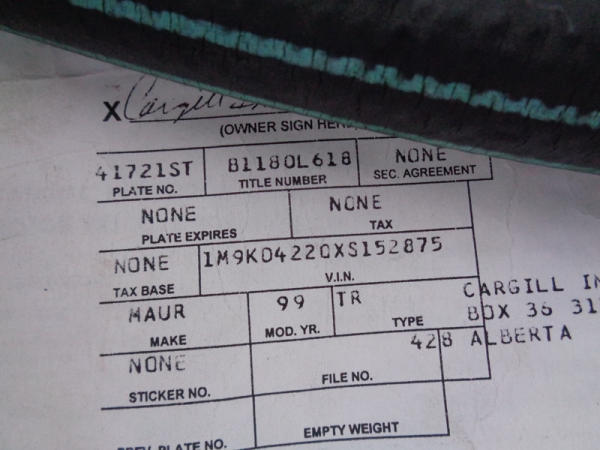 X Cargill
(OWNER SIGN HERE
41721ST 81180L618 NONE
PLATE NO. TITLE NUMBER SEC. AGREEMENT
NONE NONE
PLATE EXPIRES TAX
NONE 1M9K04220XS152875
TAX BASE V.I.N.
MAUR 99 TR CARGILL IN
MAKE MOD. YR. TYPE BOX 36 31
NONE 428 ALBERTA
STICKER NO. FILE NO.
PREV. PLATE NO. EMPTY WEIGHT